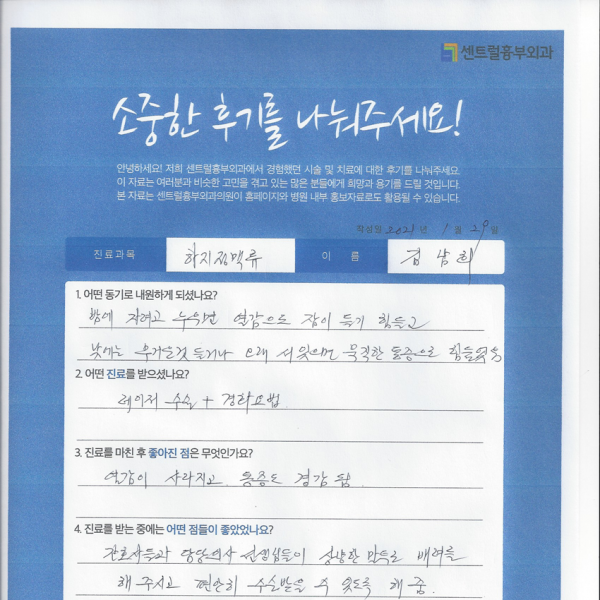 센트럴흉부외과
소중한 후기를 나눠주세요!
안녕하세요! 저희 센트럴흉부외과에서 경험했던 시술 및 치료에 대한 후기를 나눠주세요.
이 자료는 여러분과 비슷한 고민을 겪고 있는 많은 분들에게 희망과 용기를 드릴 것입니다.
본 자료는 센트럴흉부외과의원이 홈페이지와 병원 내부 홍보자료로도 활용될 수 있습니다.
작성일 2021 년 1 월 29 일
진료과목 하지정맥류 이 름 김남희
1. 어떤 동기로 내원하게 되셨나요?
밤에 자려고 누우면 열감으로 잠이 들기 힘들고
낮에는 무거운것 들거나 오래 서 있으면 묵직한 통증으로 힘들었음
2. 어떤 진료를 받으셨나요?
레이저 수술 + 경화요법
3. 진료를 마친 후 좋아진 점은 무엇인가요?
열감이 사라지고 통증도 경감 됨
4. 진료를 받는 중에는 어떤 점들이 좋았었나요?
간호사들과 담당의사 선생님들이 상냥한 말투로 배려를
해 주시고 편안히 수술받을 수 있도록 해 줌.